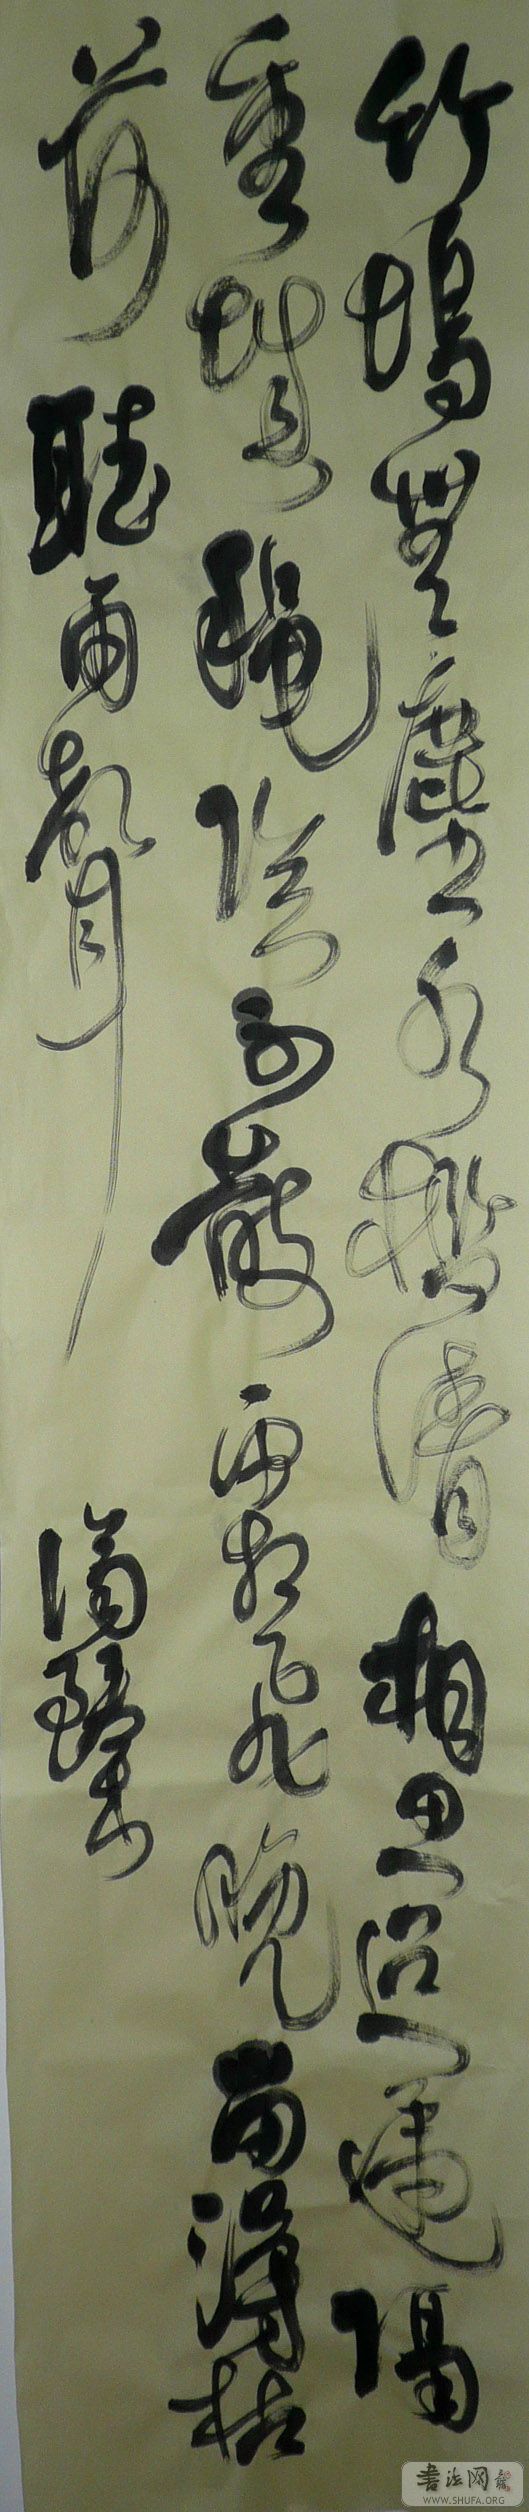 竹塢無塵水檻清相思迢遞隔
重城穐陰不散霜飛晚留得枯
荷聽雨聲
書法网
WWW.SHUFA.ORG